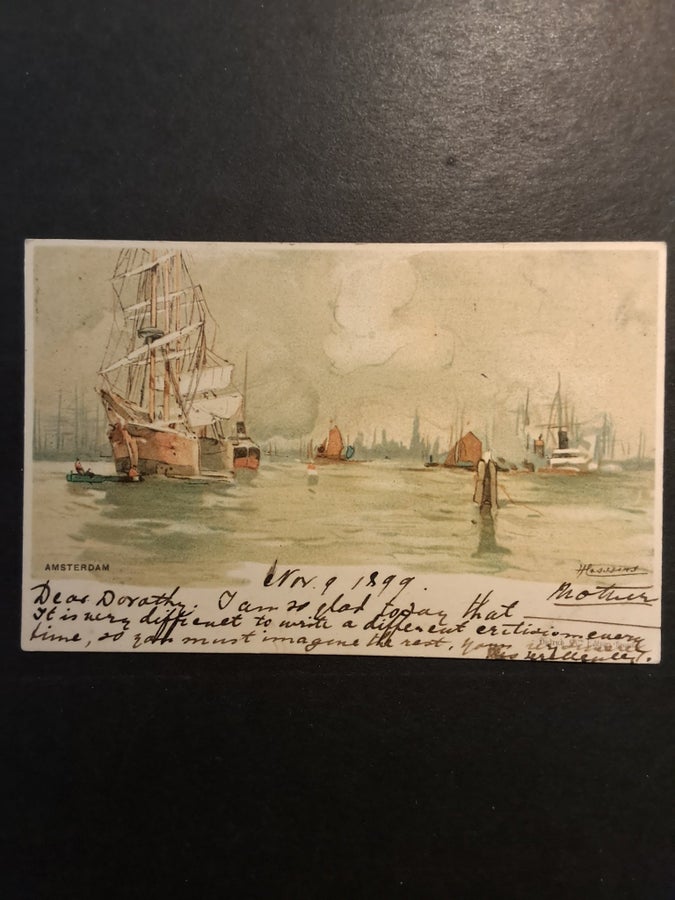 AMSTERDAM
HCassiers
Nov. 9 1899.
Mother
Dear Dorothy. I am so glad to say that
It is very difficult to write a different criticism every
time, so you must imagine the rest, yours